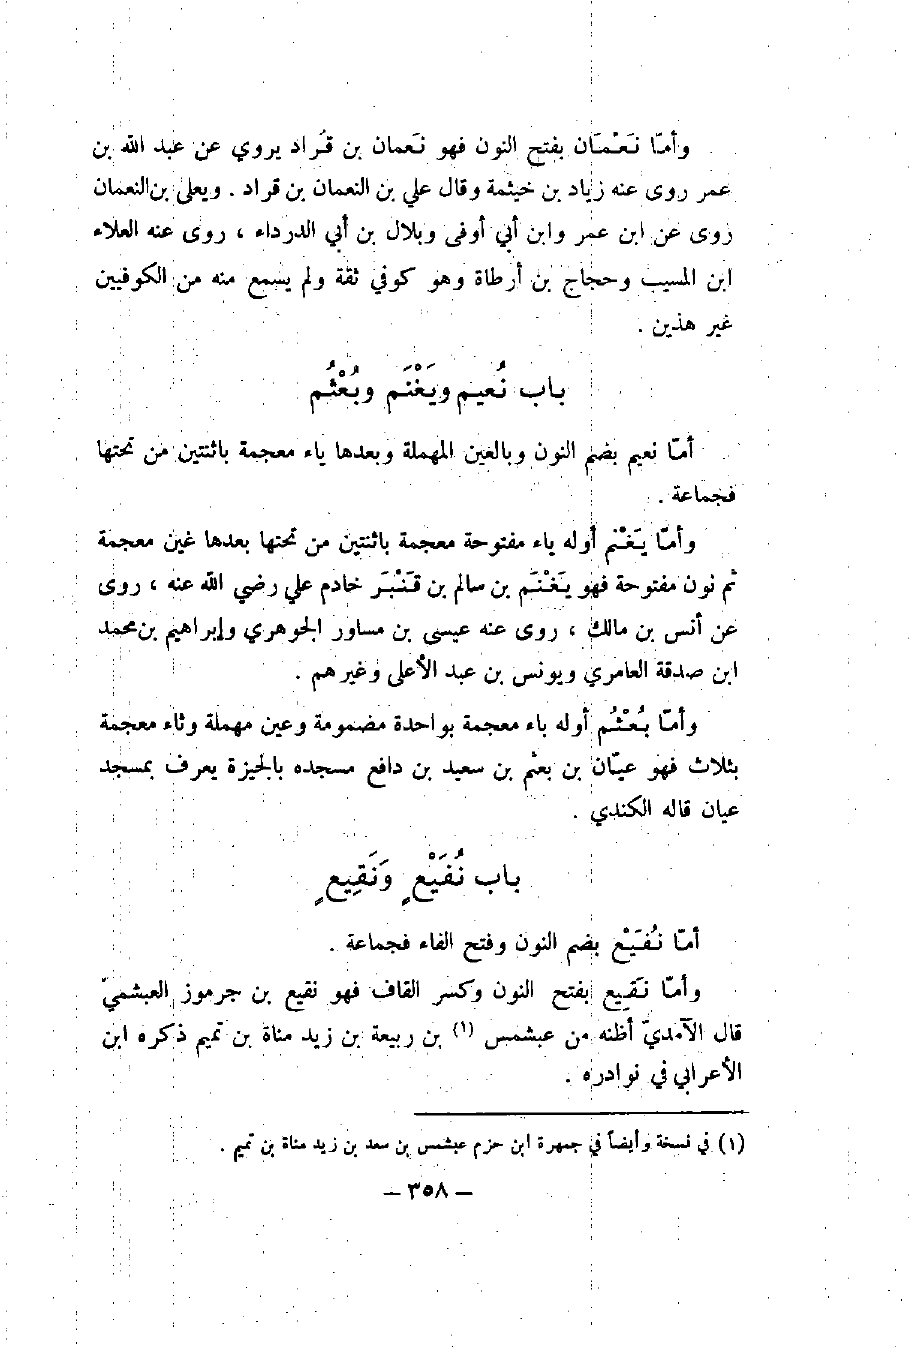 وأمّا نَعْمَان بفتح النون فهو نَعمان بن قُراد يروي عن عبد الله بن
عمر روى عنه زياد بن خيثمة وقال علي بن النعمان بن قراد . ويعلى بن النعمان
روى عن ابن عمر وابن أبي أوفى وبلال بن أبي الدرداء ، روى عنه العلاء
ابن المسيب وحجاج بن أرطاة وهو كوفي ثقة ولم يسمع منه من الكوفيين
غير هذين .
باب نُعيم ويَغْنَم وبُعْثُم
أمّا نعيم بضم النون وبالعين المهملة وبعدها ياء معجمة باثنتين من تحتها
فجماعة .
وأمّا يَغْنم أوله ياء مفتوحة معجمة باثنتين من تحتها بعدها غين معجمة
ثم نون مفتوحة فهو يَغْنَم بن سالم بن قَنْبَر خادم علي رضي الله عنه ، روى
عن أنس بن مالك ، روى عنه عيسى بن مساور الجوهري وإبراهيم بن محمد
ابن صدقة العامري ويونس بن عبد الأعلى وغيرهم .
وأمّا بُعْثُم أوله باء معجمة بواحدة مضمومة وعين مهملة وثاء معجمة
بثلاث فهو عيّان بن بعثم بن سعيد بن دافع مسجده بالجيزة يعرف بمسجد
عيان قاله الكندي .
باب نُفَيْعٍ وَنَقِيعٍ
أمّا نُفَيْع بضم النون وفتح الفاء فجماعة .
وأمّا نَقِيع بفتح النون وكسر القاف فهو نقيع بن جرموز العبشميّ
قال الآمديّ أظنه من عبشمس (١) بن ربيعة بن زيد مناة بن تميم ذكره ابن
الأعرابي في نوادره .
(١) في نسخة وأيضاً في جمهرة ابن حزم عبشمس بن سعد بن زيد مناة بن تميم .
– ٣٥٨ –